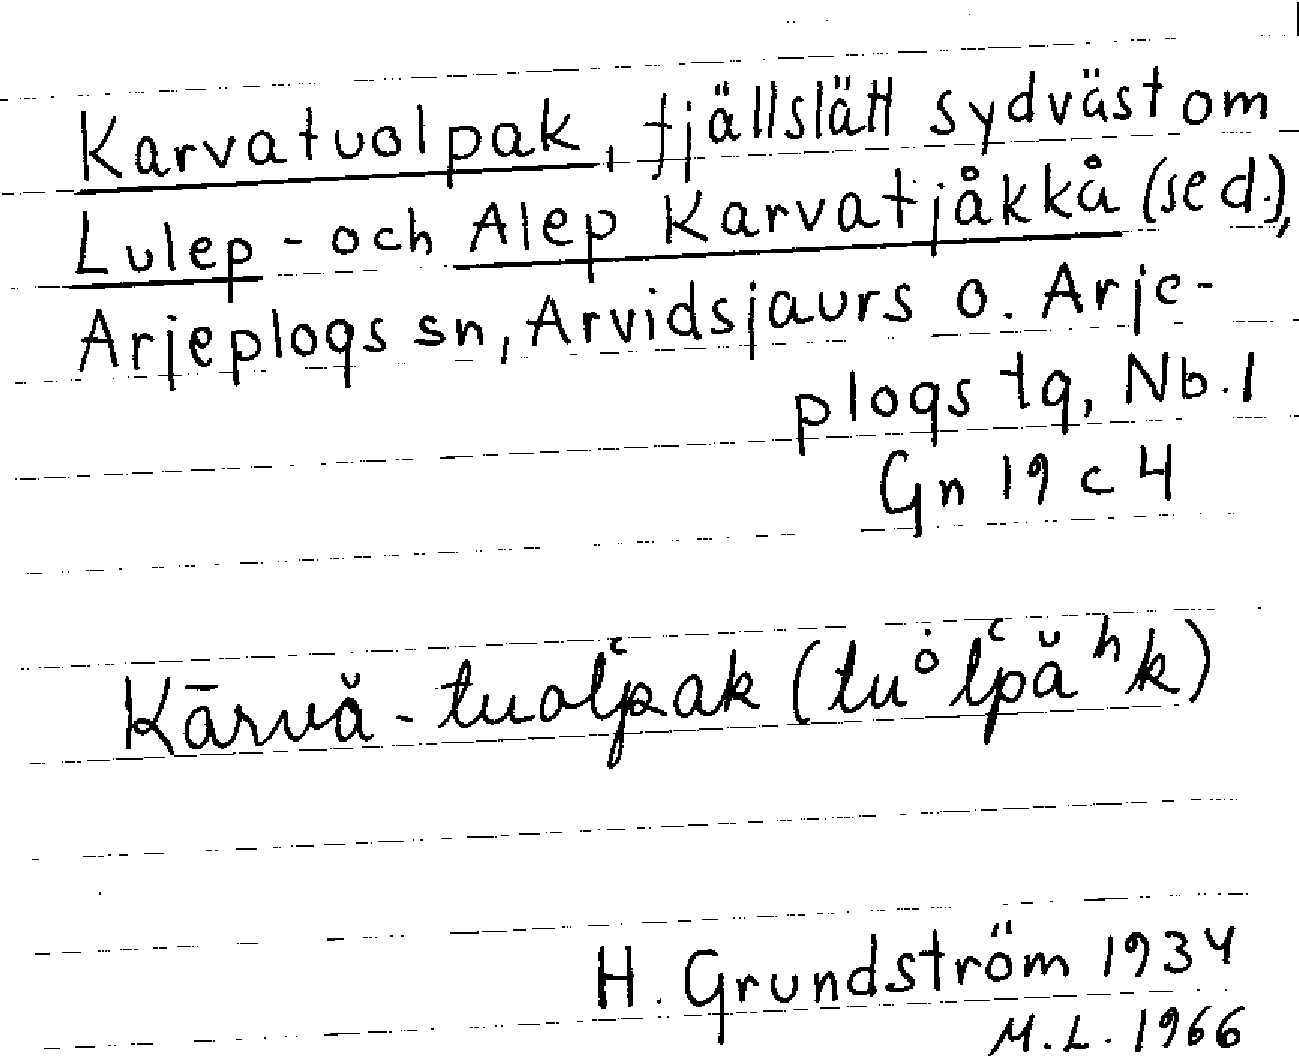 Karvatuolpak, fjällslätt sydväst om
Lulep- och Alep Karvatjåkkå (se d.),
Arjeplogs sn, Arvidsjaurs o. Arje-
plogs tg, Nb. l
Gn 19 c 4
Kārvă-tuolʿpak (tuȯlʿpăʰk)
H. Grundström 1934
M.L. 1966